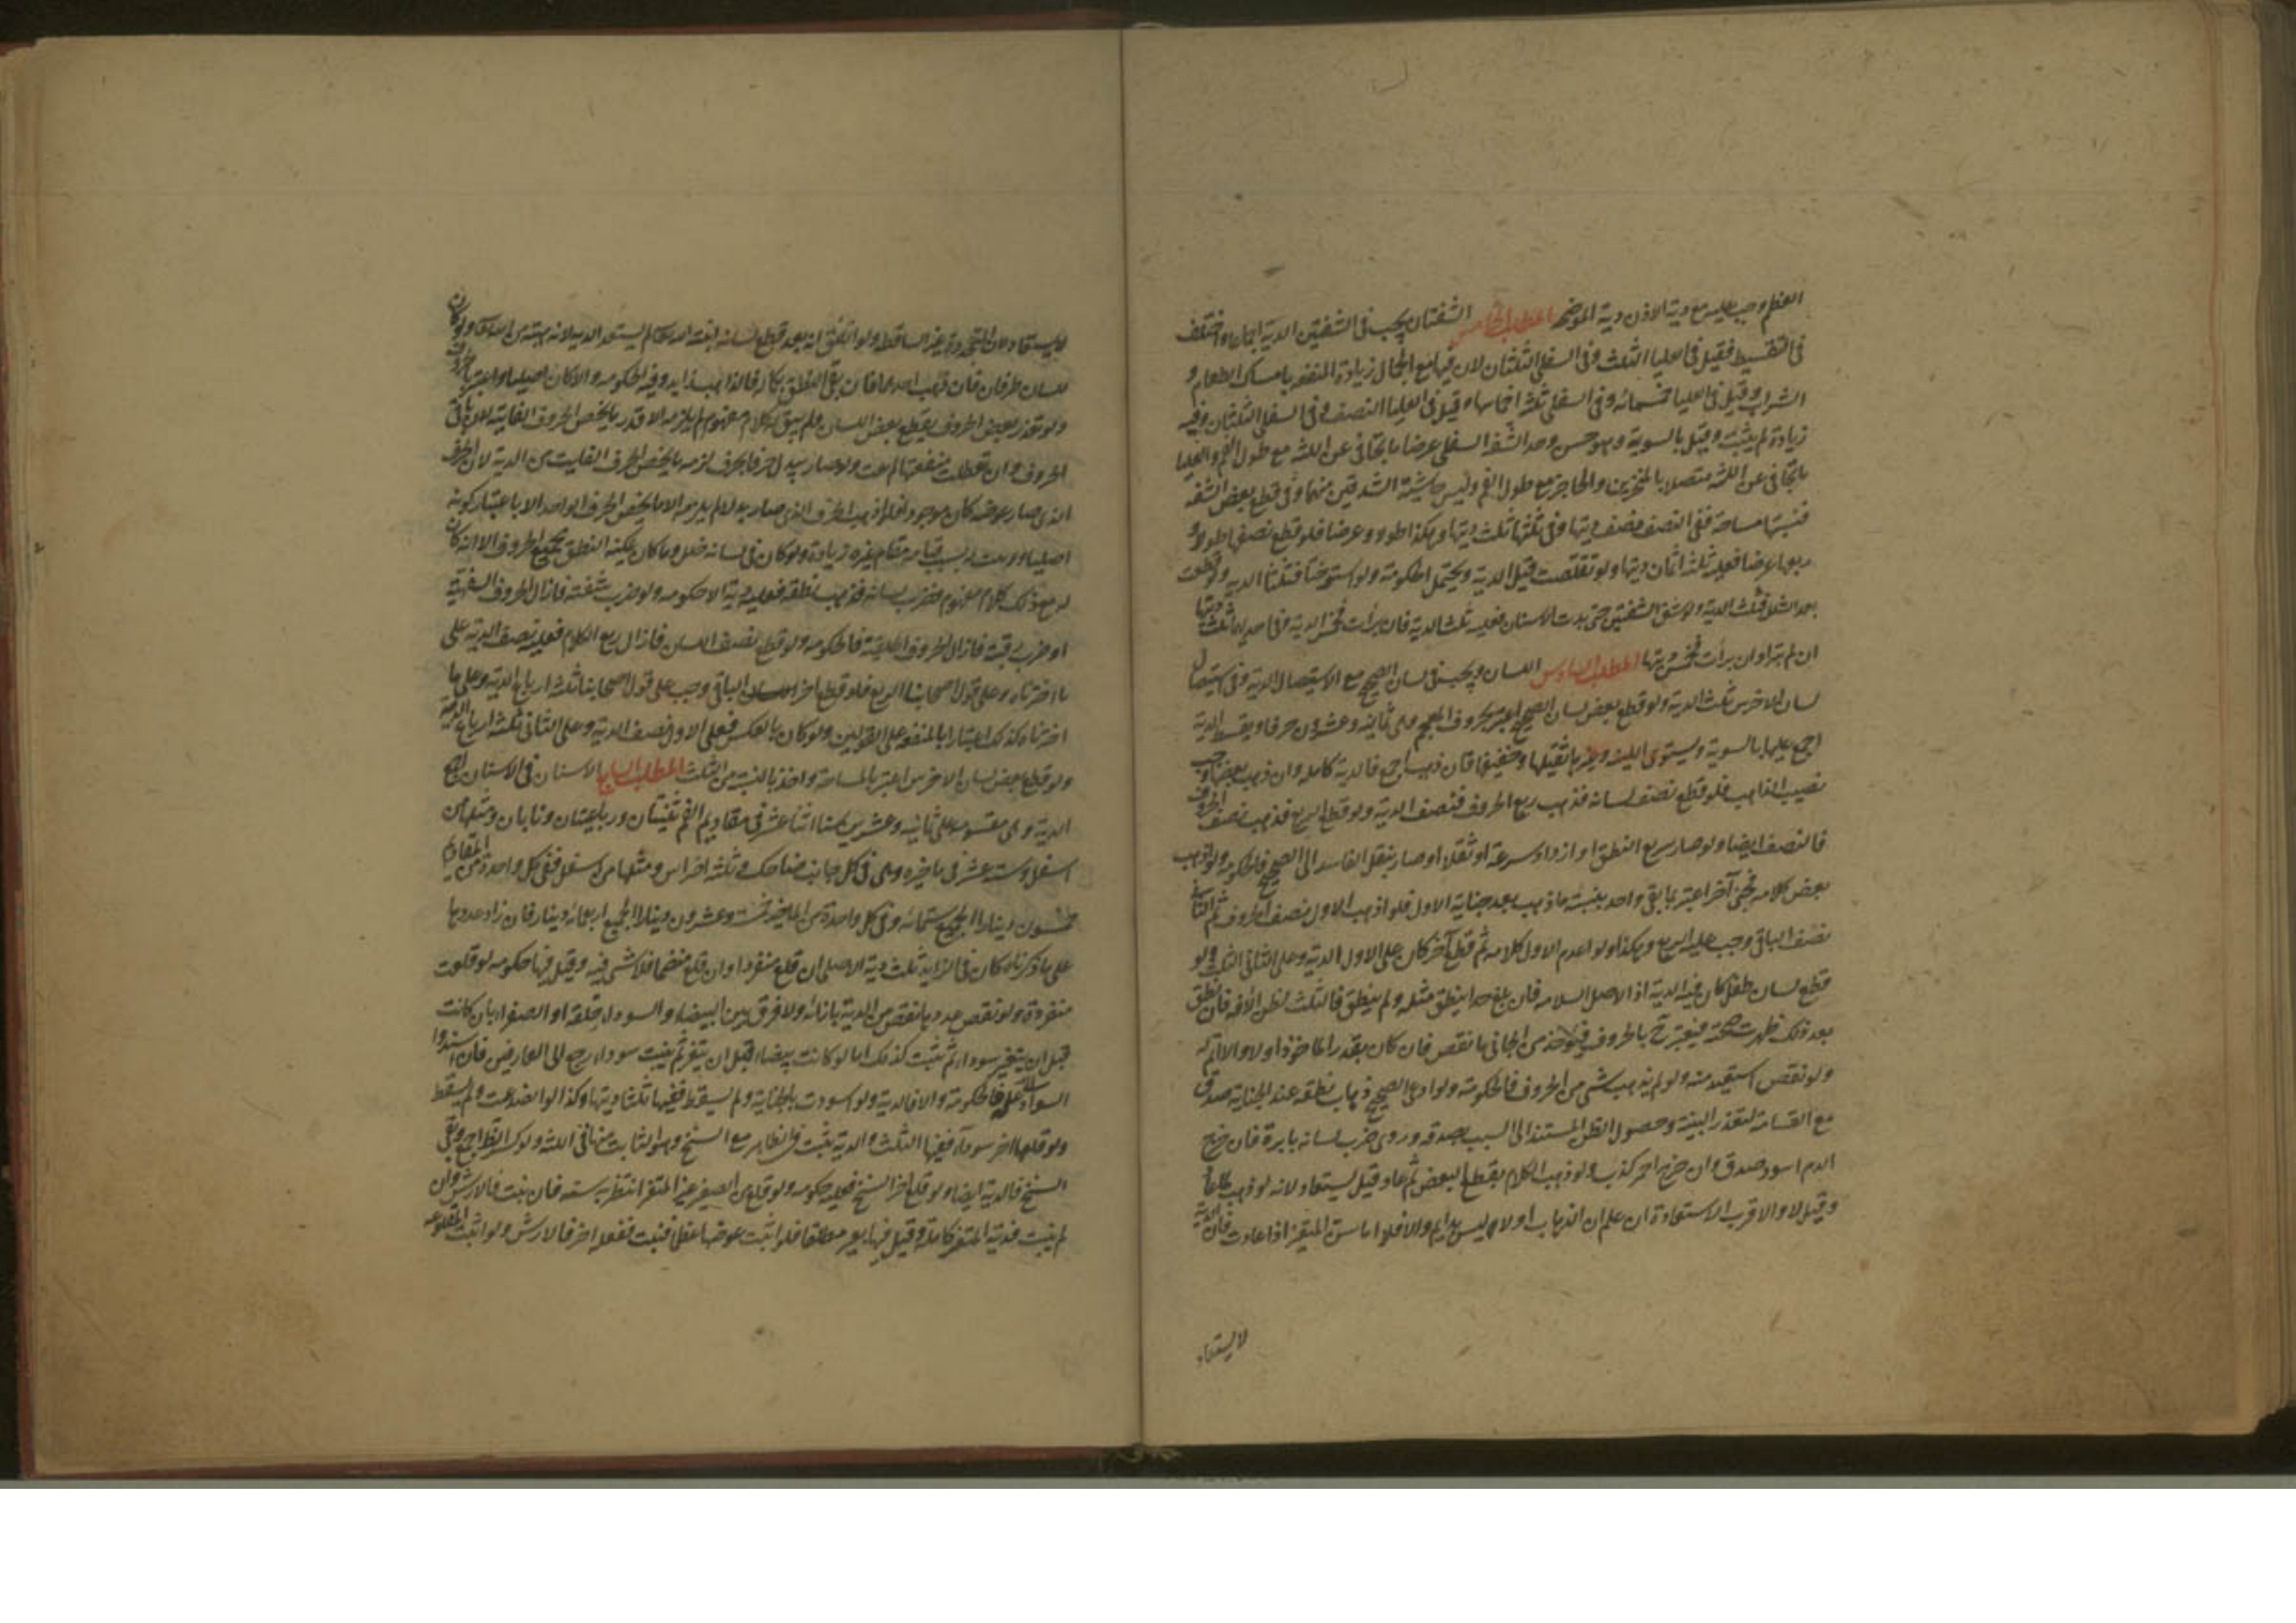 العظم وجب عليه مع دية الاذن دية الموضحه المطلب الخامس الشفتان يجب في الشفتين الدية اجماعا واختلف
في التقسيط فقيل في العليا الثلث وفي السفلى الثلثان لان فيها مع الجمال زيادة المنفعه بامساك الطعام و
الشراب وقيل في العليا خمسمائه وفي السفلى ثلثه اخماسها وقيل في العليا النصف وفي السفلى الثلثان وفيه
زيادة لم يثبت وقيل بالسوية وهو حسن وحد الشفه السفلى عرضا ما تجافى عن اللثه مع طول الفم والعليا
ما تجافى عن اللثه متصلا بالمنخرين والحاجز مع طول الفم وليس حاشية الشدقين منهما وفي قطع بعض الشفه
بنسبتها مساحة ففي النصف نصف ديتها وفي ثلثها ثلث ديتها وهكذا طولا وعرضا فلو قطع نصفها طولا و
ربعها عرضا فعليه ثلثه اثمان ديتها ولو تقلصت قيل الدية ويحتمل الحكومة ولو استرختا فثلثا الدية ولو قطعت
بعد الشلل فثلث الدية ولو شق الشفتين حتى بدت الاسنان فعليه ثلث الدية فان برأت فخمس الدية وفي احديهما ثلث ديتها
ان لم تبرأ وان برأت فخمس ديتها المطلب السادس اللسان ويجب في لسان الصحيح مع الاستيصال الدية وفي استيصال
لسان الاخرس ثلث الدية ولو قطع بعض لسان الصحيح اعتبر بحروف المعجم وهي ثمانيه وعشرون حرفا ويقسط الدية
اجمع عليها بالسوية ويستوى اللينه وغيرها ثقيلها وخفيفها فان ذهب اجمع فالدية كامله وان ذهب بعضها وجب
نصيب الذاهب فلو قطع نصف لسانه فذهب ربع الحروف فنصف الدية ولو قطع الربع فذهب نصف الحروف
فالنصف ايضا ولو صار سريع النطق او ازداد سرعة او ثقلا او صار ينقل الفاسد الى الصحيح فالحكومه ولو اذهب
بعض كلامه فجنى آخر اعتبر بما بقى واحد بنسبة ما ذهب بعد جناية الاول فلو اذهب الاول نصف الحروف ثم الثاني
نصف الباقي وجب عليه الربع وهكذا ولو اعدم الاول كلامه ثم قطع آخر كان على الاول الدية وعلى الثاني الثلث ولو
قطع لسان طفل كان فيه الدية اذ الاصل السلامه فان بلغ حدا ينطق مثله ولم ينطق فالثلث لظن الافه فان نطق
بعد ذلك ظهرت صحته فيعتبر ح بالحروف فيؤخذ من الجاني ما نقص فان كان بقدر الماخوذ اولا والا اتم له
ولو نقص استعيد منه ولو لم يذهب شى من الحروف فالحكومة ولو ادعى الصحيح ذهاب نطقه عند الجناية صدق
مع القسامة لتعذر البينة وحصول الظن المستند الى السبب بصدقه وروى ضرب لسانه بابرة فان خرج
الدم اسود صدق وان خرج احمر كذب ولو ذهب الكلام بقطع البعض ثم عاد قيل يستعاد لانه لو ذهب لما عاد
وقيل لا والاقرب الاستعادة ان علم ان الذهاب اولا ليس بدايم والا فلا اما سن المثغر اذا عادت فان الدية
لا يستعاد
لا يستعاد لان المتجددة غير الساقطه ولو اتفق انه بعد قطع لسانه انبته الله تعالى لم يستعد الديه لانه هبة من الله تعالى ولو كان
للسان طرفان فان ذهب احدهما فان بقى النطق بكماله فالذاهب زايد وفيه الحكومه والا كان اصليا واعتبر بالحروف
ولو تعذر بعض الحروف بقطع بعض اللسان ولم يبق له كلام مفهوم لم يلزمه الا قدر ما يخص الحروف الفايته لان باقي
الحروف وان تعطلت منفعتها لم يفت ولو صار يبدل حرفا بحرف لزمه ما يخص الحرف الفايت من الدية لان الحرف
الذي صار عوضه كان موجودا فلو اذهب الحرف الذي صار بدلا لم يلزمه الا ما يخص الحرف الواحد الا باعتبار كونه
اصليا ولا يثبت بسبب قيامه مقام غيره زيادة ولو كان في لسانه خلل وما كان يمكنه النطق بجميع الحروف الا انه كان
له مع ذلك كلام مفهوم فضرب لسانه فذهب نطقه فعليه دية الا حكومه ولو ضرب شفته فازال الحروف الشفهية
او ضرب رقبته فازال الحروف الحلقية فالحكومه ولو قطع نصف اللسان فازال ربع الكلام فعليه نصف الدية على
ما اخترناه وعلى قول اصحابنا الربع فلو قطع اخر اللسان الباقي وجب على قول اصحابنا ثلثه ارباع الدية وعلى ما
اخترناه كذلك اعتبارا بالمنفعه على القولين ولو كان بالعكس فعلى الاول نصف الدية وعلى الثاني ثلثه ارباع الدية
ولو قطع بعض لسان الاخرس اعتبر بالمساحة واخذ بالنسبة من الثلث المطلب السابع الاسنان في الاسنان اجمع
الدية وهي مقسومه على ثمانيه وعشرين سنا اثنا عشر في مقاديم الفم ثنيتان ورباعيتان ونابان ومثلها من
اسفل وسته عشر في ماخيره وهي في كل جانب ضاحك وثلثه اضراس ومثلها من اسفل ففي كل واحدة من المقاديم
خمسون دينارا الجميع ستمائه وفي كل واحدة من الماخير خمسه وعشرون دينارا الجميع اربعمائه دينار فان زاد عددها
على ما ذكرناه كان في الزايد ثلث دية الاصلي ان قلع منفردا وان قلع منضما فلا شى فيه وقيل فيها حكومه لو قلعت
منفردة ولو نقص عددها نقص من الدية بازائه ولا فرق بين البيضاء والسوداء خلقة او الصفراء بان كانت
قبل ان يثغر سوداء ثم نبتت كذلك اما لو كانت بيضاء قبل ان يثغر ثم نبتت سوداء رجع الى العارفين فان اسندوا
السواد الى علة فالحكومة والا فالدية ولو اسودت بالجناية ولم يسقط ففيها ثلثا ديتها وكذا لو انصدعت ولم يسقط
ولو قلعها اخر سوداء ففيها الثلث والدية يثبت في الظاهر مع السنخ وهو الثابت منها في اللثه ولو كسر الظاهر اجمع وبقى
السنخ فالدية ايضا ولو قلع اخر السنخ فعليه حكومه ولو قلع سن الصغير غير المثغر انتظر به سنه فان نبتت فالارش وان
لم ينبت فدية المثغر كاملة وقيل فيها بعير مطلقا فلو انبت عوضها عظما فنبت فقلعه اخر فالارش ولو اثبت المقلوعه